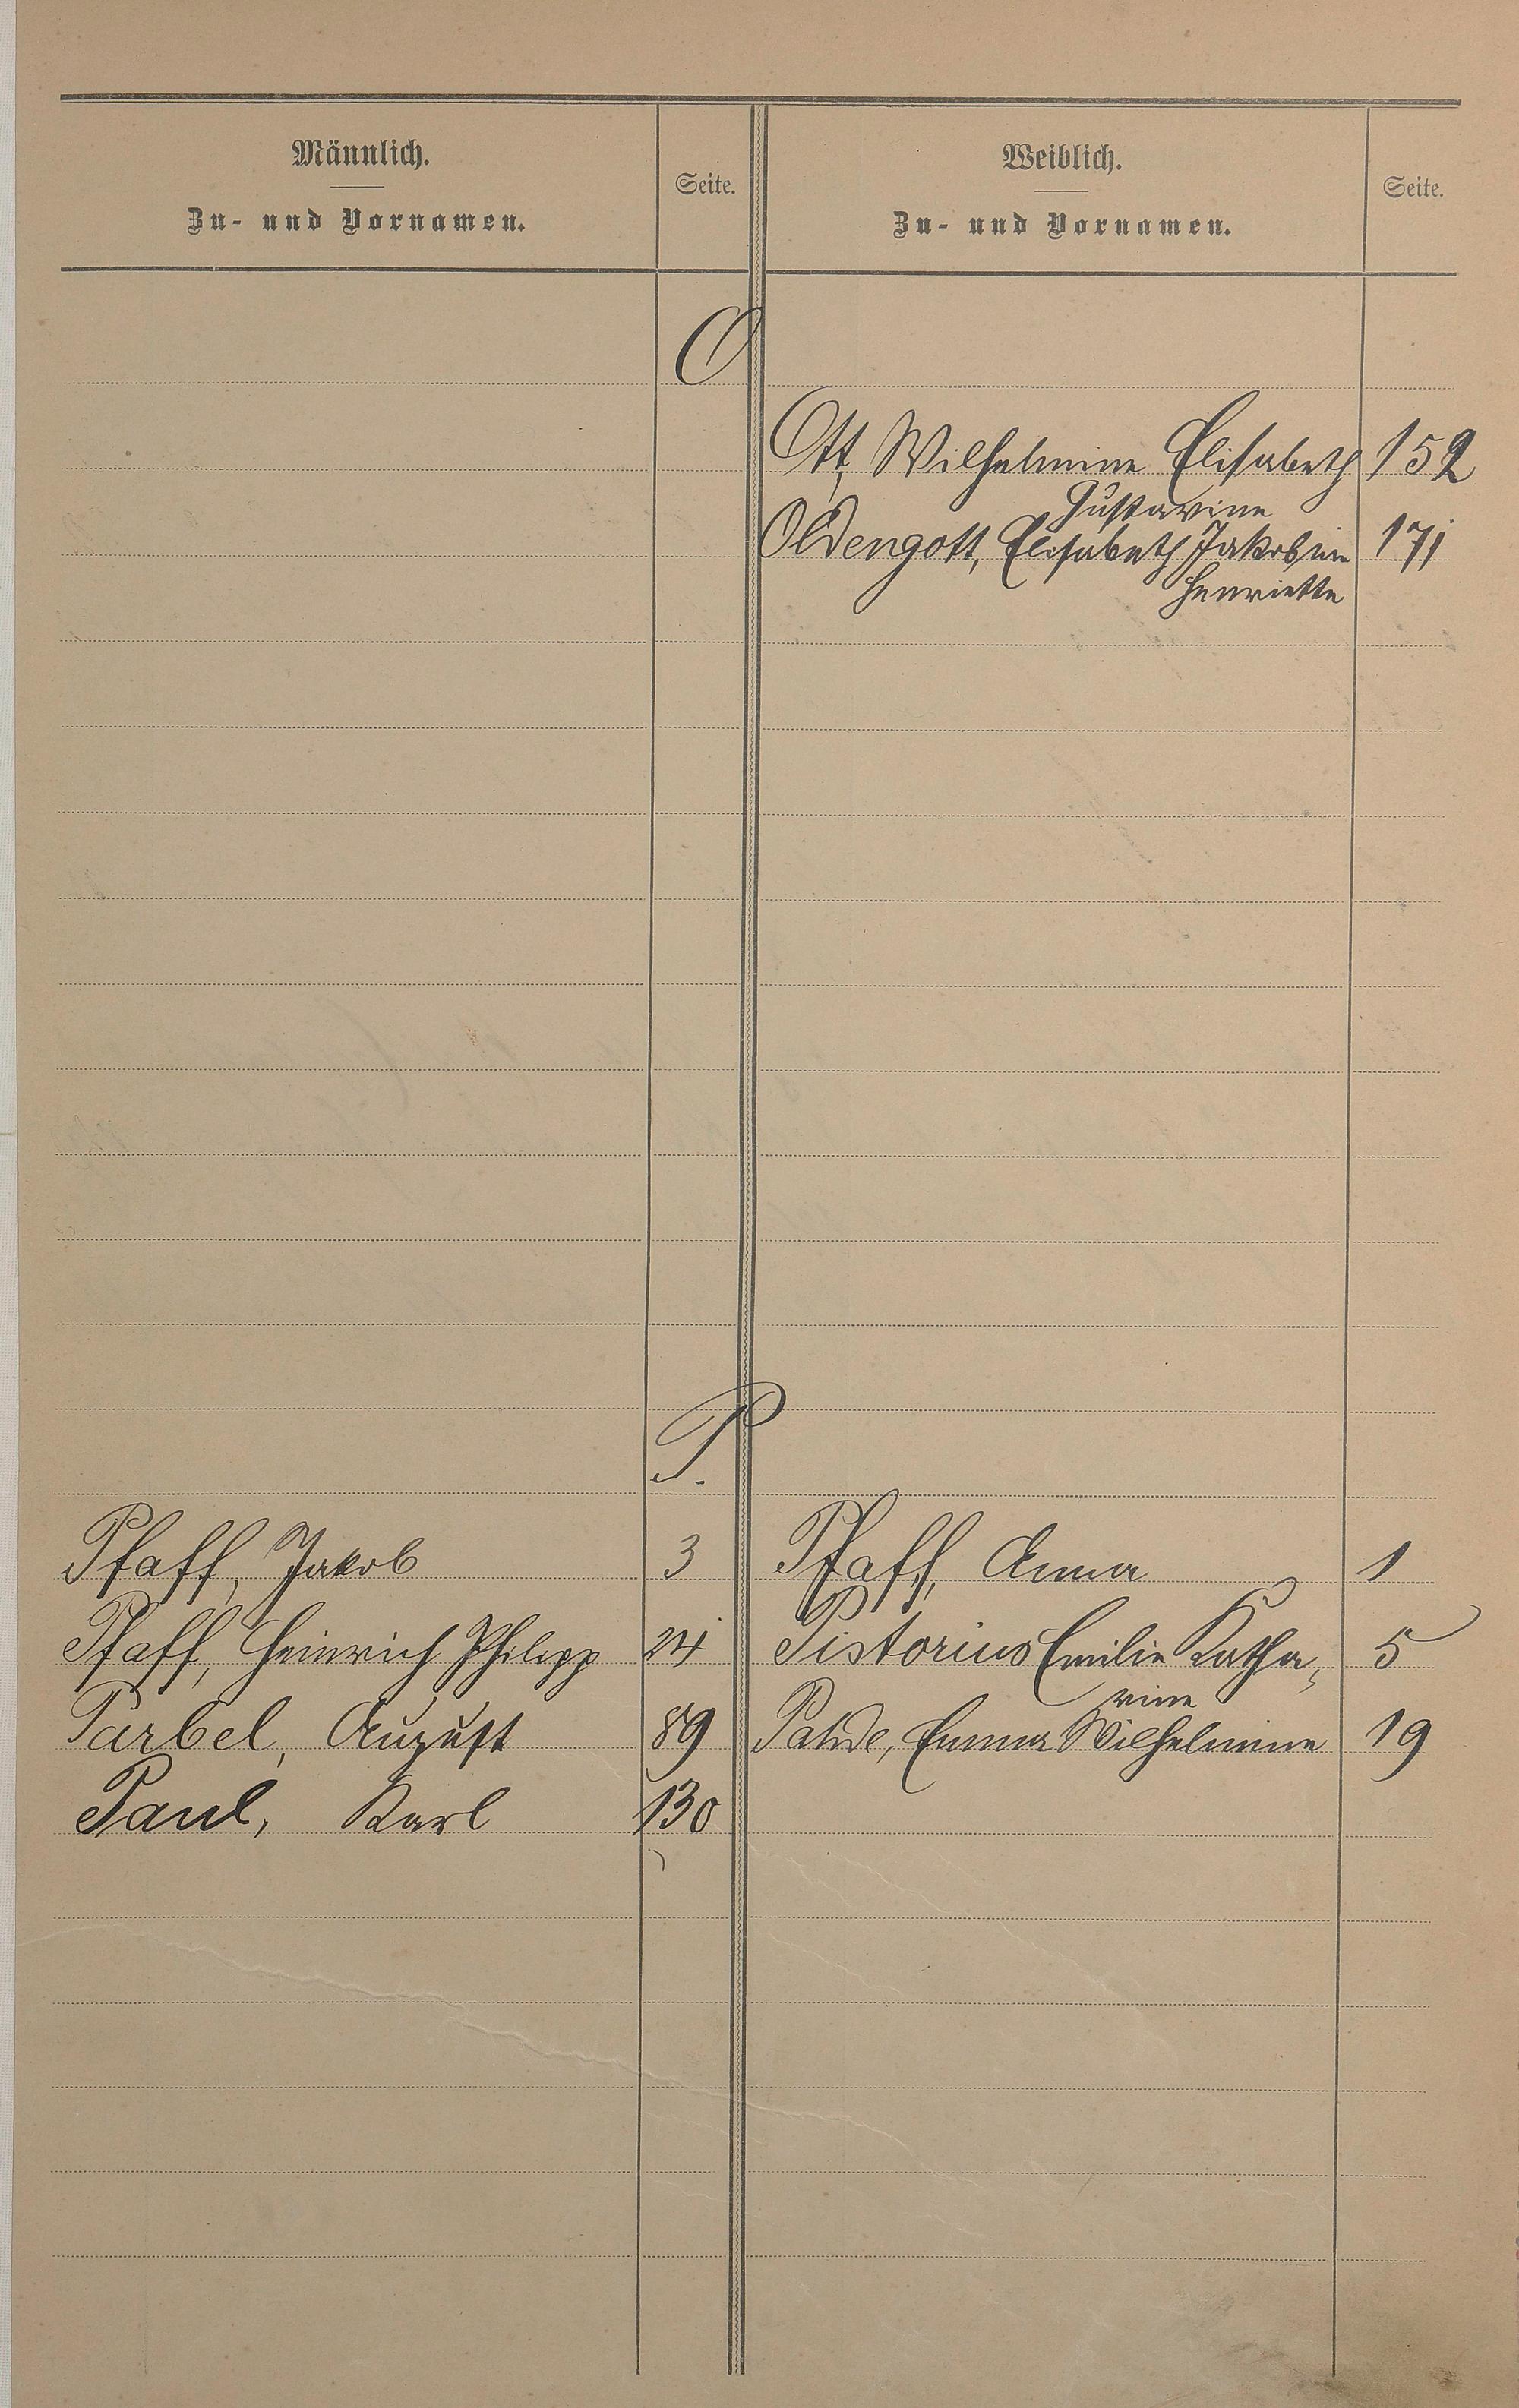 Männlich.
Zu- und Vornamen.
Seite.
Weiblich.
Zu- und Vornamen.
Seite.
O
Ott, Wilhelmine Elisabeth 152
Gustavine
Oldengott, Elisabeth Jakobine 171
Henriette
P.
Pfaff, Jakob 3 Pfaff, Anna 1
Pfaff, Heinrich Philipp 24 Pistorius Emilie Katha- 5
rine
Parbel, August 89 Pahde, Emma Wilhelmine 19
Paul, Karl 130